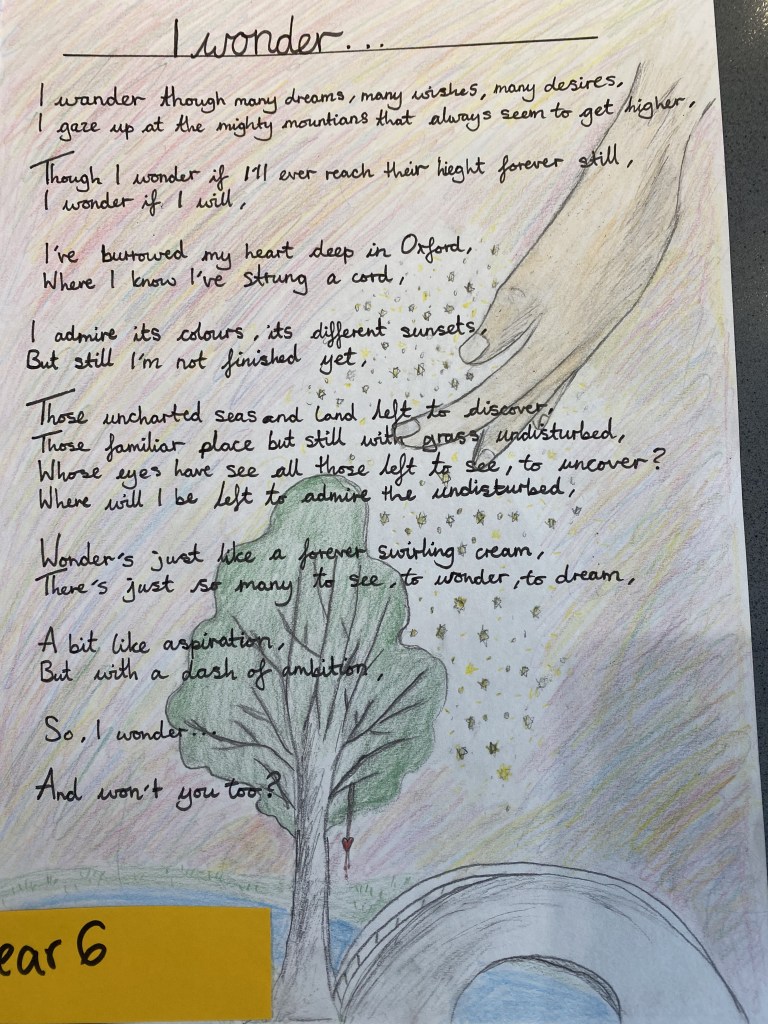 I wonder...
I wander though many dreams, many wishes, many desires,
I gaze up at the mighty mountians that always seem to get higher,
Though I wonder if I'll ever reach their hieght forever still,
I wonder if I will,
I've burrowed my heart deep in Oxford,
Where I know I've strung a cord,
I admire its colours, its different sunsets,
But still I'm not finished yet,
Those uncharted seas and land left to discover,
Those familiar place but still with grass undisturbed,
Whose eyes have see all those left to see, to uncover?
Where will I be left to admire the undisturbed,
Wonder's just like a forever swirling cream,
There's just so many to see, to wonder, to dream,
A bit like aspiration,
But with a dash of ambition,
So, I wonder...
And won't you too?
ear 6